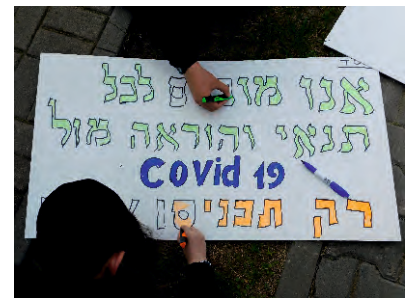 אנו לכל
תנאי והוראה מול
Covid 19
רק תכניסו